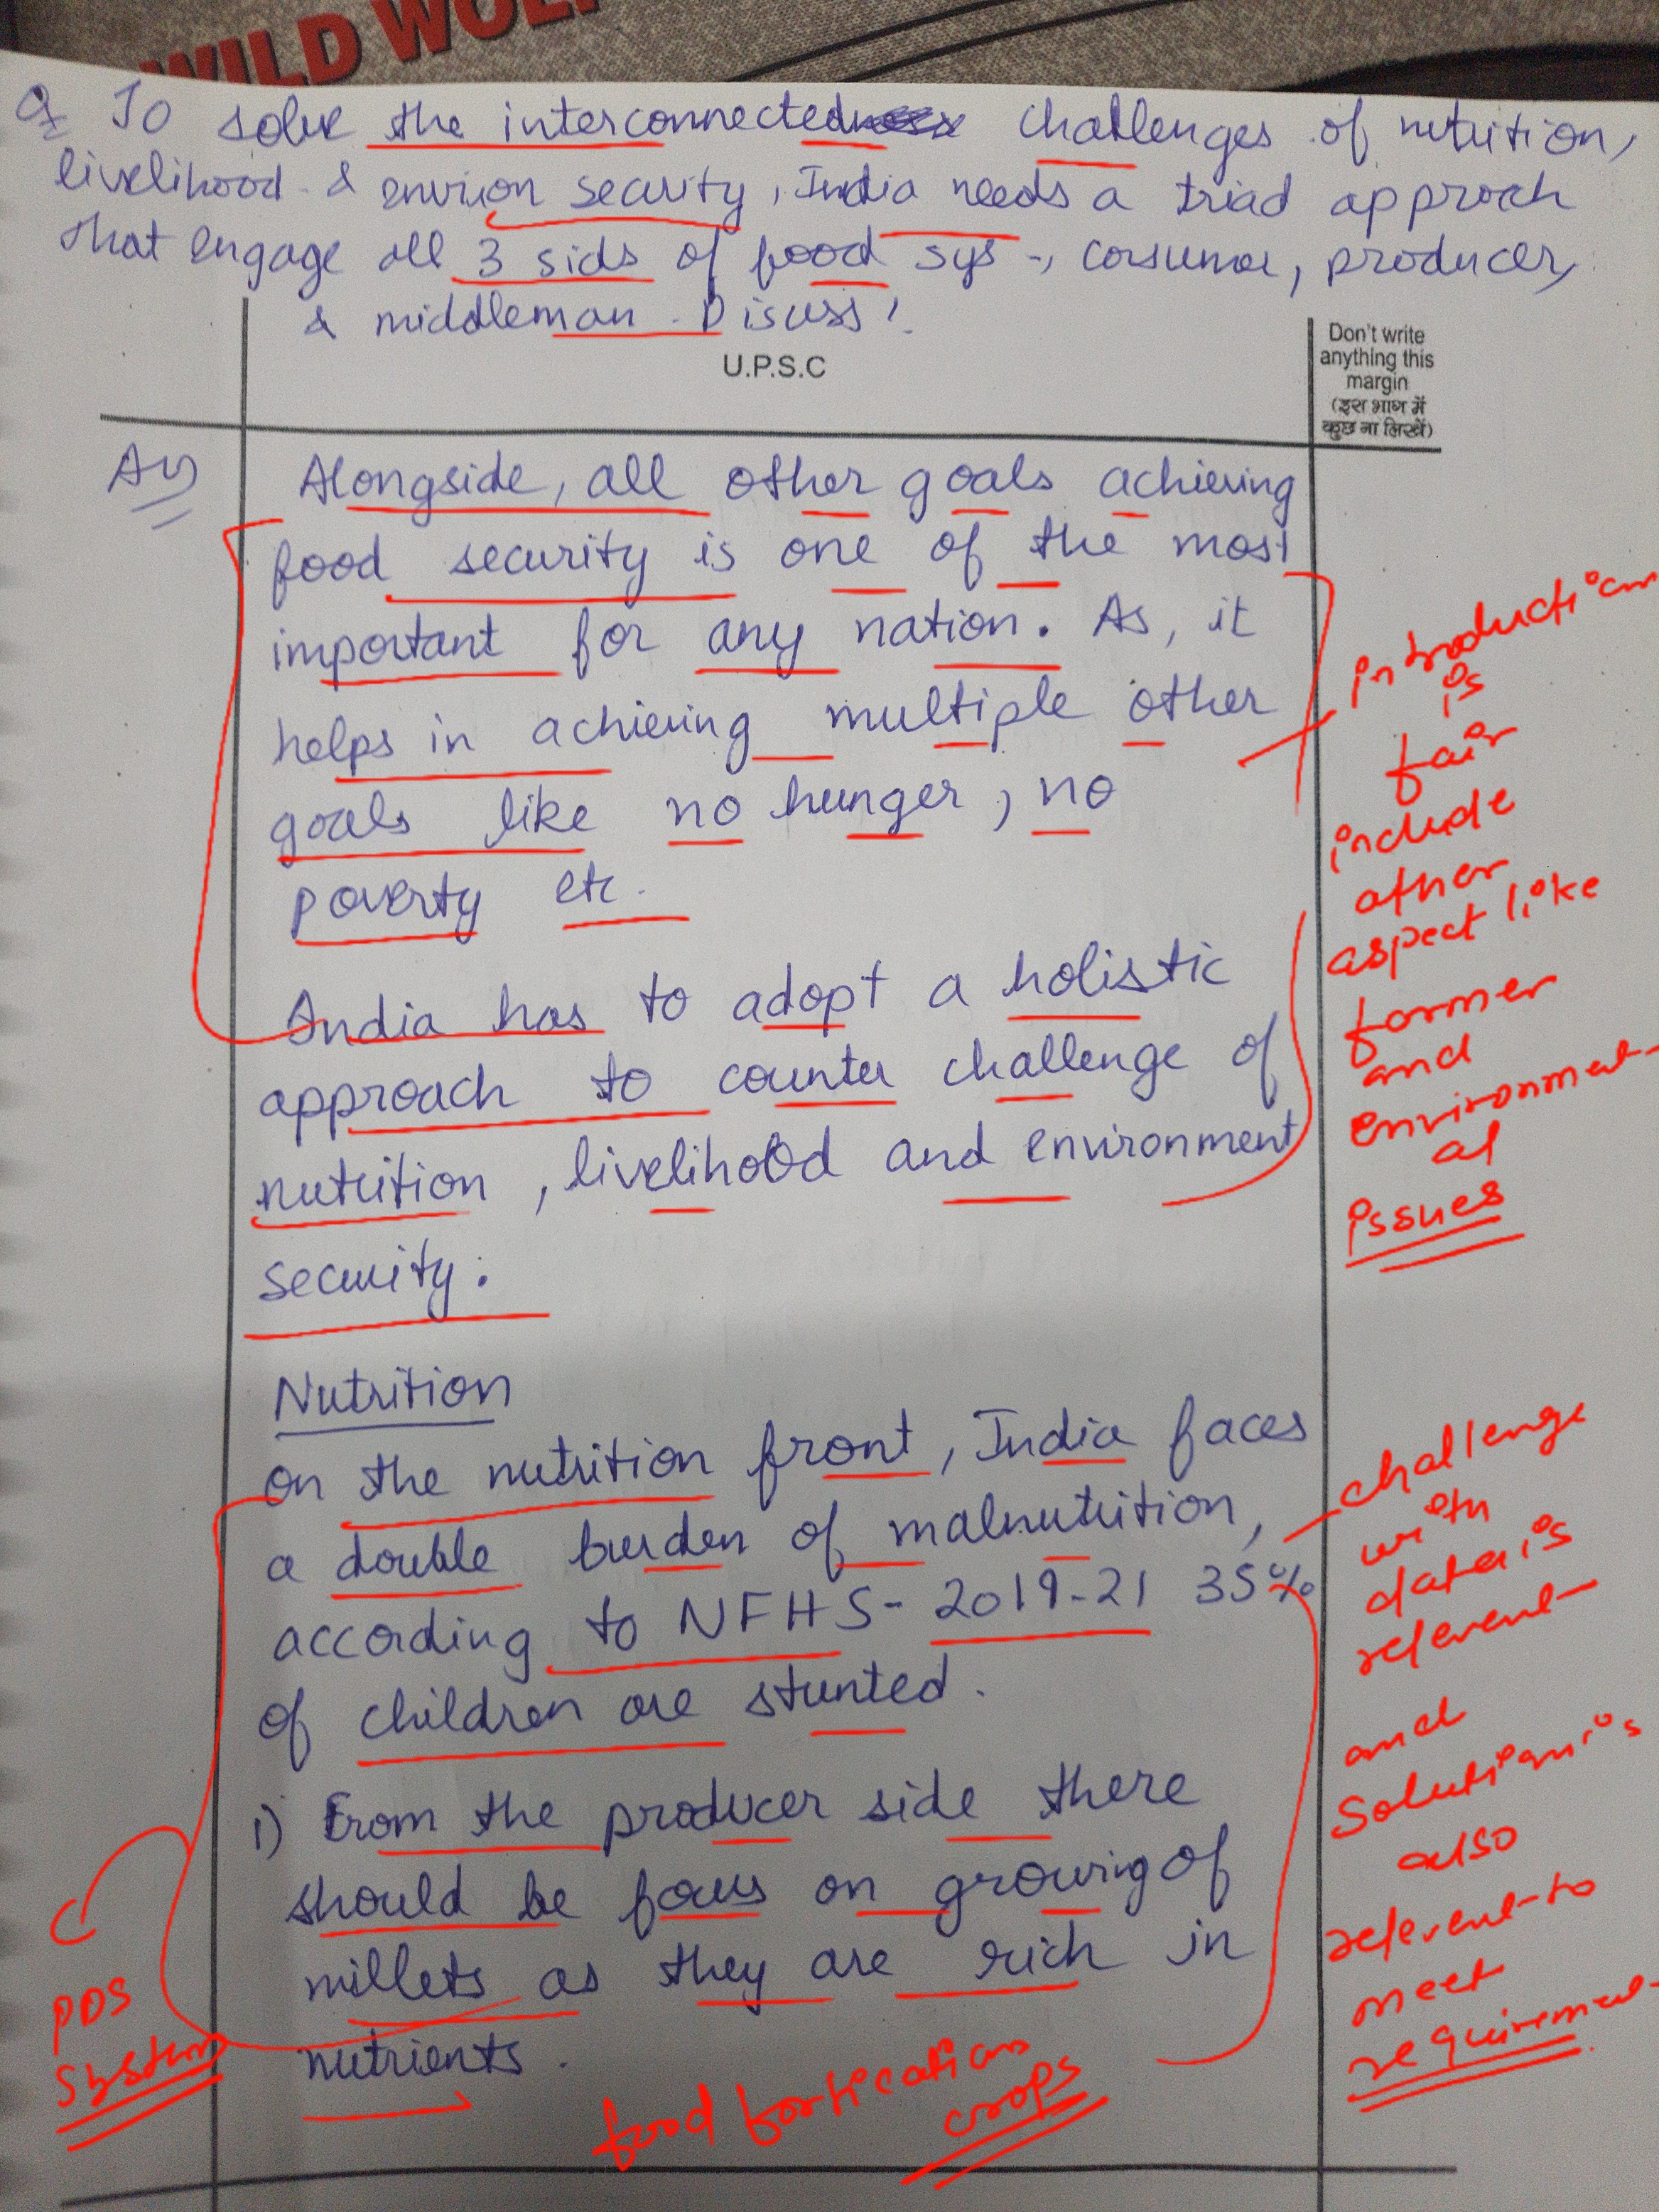 WILD WOL
Q To solve the interconnected challenges of nutrition,
livelihood & environ security, India needs a triad approch
that engage all 3 sids of food sys -, consumer, producer,
& middleman. Discuss!
U.P.S.C
Don't write
anything this
margin
(इस भाग में
कुछ ना लिखें)
Ans
Alongside, all other goals achieving
food security is one of the most
important for any nation. As, it
helps in achieving multiple other
goals like no hunger, no
poverty etc.
India has to adopt a holistic
approach to counter challenge of
nutrition, livelihood and environment
security.
introduction
is
fair
include
other
aspect like
farmer
and
environment-
al
issues
Nutrition
on the nutrition front, India faces
a double burden of malnutrition,
according to NFHS- 2019-21 35%
of children are stunted.
1) From the producer side there
should be focus on growing of
millets as they are rich in
nutrients.
challenge
with
data is
relevent
and
solution is
also
relevent to
meet
requirement
PDS
system
food fortification
crops